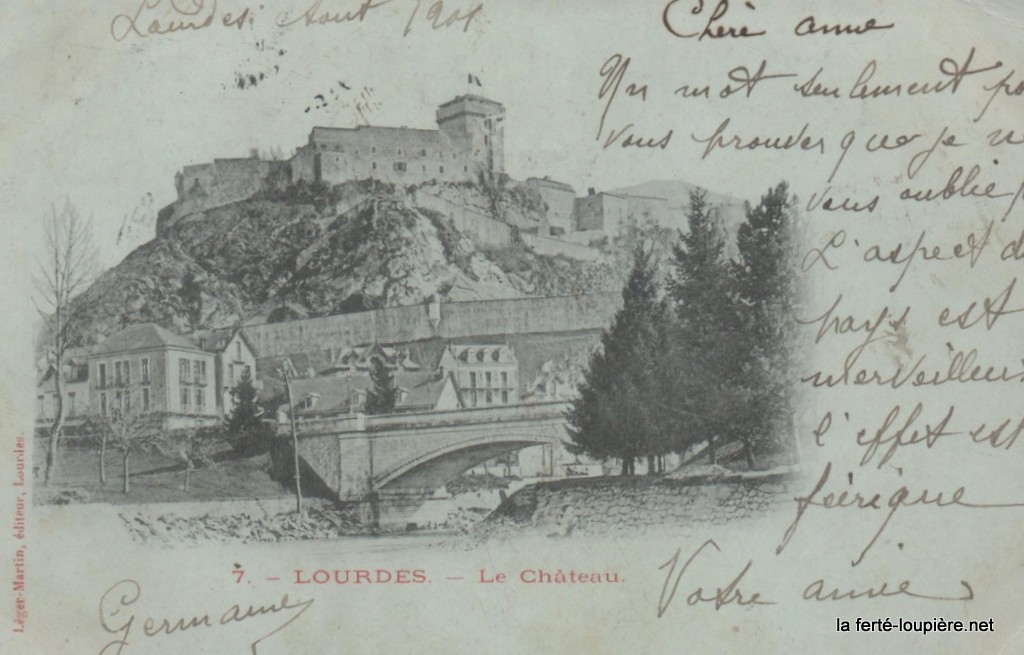 Lourdes, Août 1901
Chère amie
Un mot seulement po
vous prouver que je n
vous oublie p
L'aspect d
pays est
merveilleux
l'effet est
féerique
Votre amie
Germaine
7. – LOURDES. – Le Château.
Léger-Martin, éditeur, Lourdes.
la ferté-loupière.net